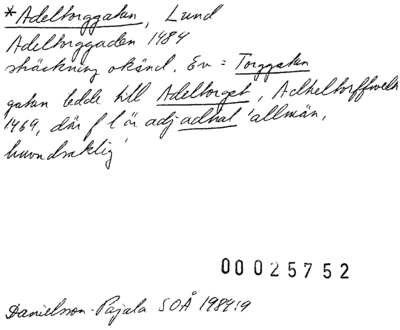 *Adeltorggatan, Lund
Adeltorggaden 1484
sträckning okänd. Ev = Torggatan
gatan ledde till Adeltorget, Adheltorffweth
1469, där f l är adj adhal 'allmän,
huvudsaklig'
00025752
Danielsson-Pajala SOÅ 1984:9